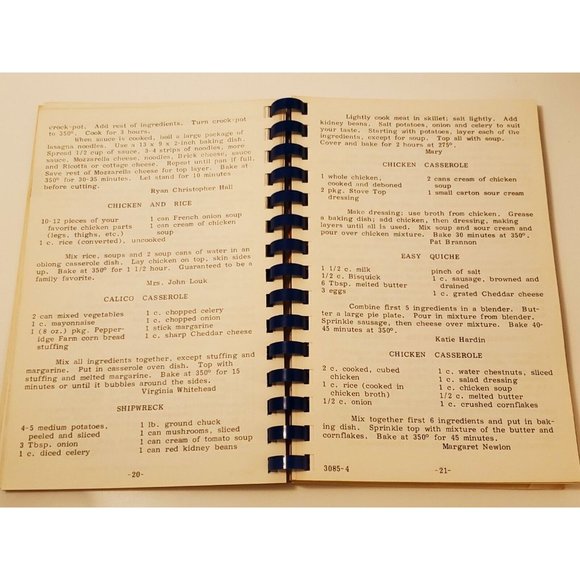 crock-pot. Add rest of ingredients. Turn crock-pot
to 350°. Cook for 3 hours.
When sauce is cooked, boil a large package of
lasagna noodles. Use a 13 x 9 x 2-inch baking dish.
Spread 1/2 cup of sauce, 3-4 strips of noodles, more
sauce, Mozzarella cheese, noodles, Brick cheese, sauce
and Ricotta or cottage cheese. Repeat until pan if full.
Save rest of Mozzarella cheese for top layer. Bake at
350° for 30-35 minutes. Let stand for 10 minutes
before cutting.
Ryan Christopher Hall
CHICKEN AND RICE
10-12 pieces of your
favorite chicken parts
(legs, thighs, etc.)
1 c. rice (converted), uncooked
1 can French onion soup
1 can cream of chicken
soup
Mix rice, soups and 2 soup cans of water in an
oblong casserole dish. Lay chicken on top, skin sides
up. Bake at 350° for 1 1/2 hour. Guaranteed to be a
family favorite.
Mrs. John Louk
CALICO CASSEROLE
2 can mixed vegetables
1 c. mayonnaise
1 (8 oz.) pkg. Pepper-
idge Farm corn bread
stuffing
1 c. chopped celery
1 c. chopped onion
1 stick margarine
1 c. sharp Cheddar cheese
Mix all ingredients together, except stuffing and
margarine. Put in casserole oven dish. Top with
stuffing and melted margarine. Bake at 350° for 15
minutes or until it bubbles around the sides.
Virginia Whitehead
SHIPWRECK
4-5 medium potatoes,
peeled and sliced
3 Tbsp. onion
1 c. diced celery
1 lb. ground chuck
1 can mushrooms, sliced
1 can cream of tomato soup
1 can red kidney beans
-20-
Lightly cook meat in skillet; salt lightly. Add
kidney beans. Salt potatoes, onion and celery to suit
your taste. Starting with potatoes, layer each of the
ingredients, except for soup. Top all with soup.
Cover and bake for 2 hours at 275°.
Mary
CHICKEN CASSEROLE
1 whole chicken,
cooked and deboned
2 pkg. Stove Top
dressing
2 cans cream of chicken
soup
1 small carton sour cream
Make dressing; use broth from chicken. Grease
a baking dish; add chicken, then dressing, making
layers until all is used. Mix soup and sour cream and
pour over chicken mixture. Bake 30 minutes at 350°.
Pat Brannon
EASY QUICHE
1 1/2 c. milk
1/2 c. Bisquick
6 Tbsp. melted butter
3 eggs
pinch of salt
1 c. sausage, browned and
drained
1 c. grated Cheddar cheese
Combine first 5 ingredients in a blender. But-
ter a large pie plate. Pour in mixture from blender.
Sprinkle sausage, then cheese over mixture. Bake 40-
45 minutes at 350°.
Katie Hardin
CHICKEN CASSEROLE
2 c. cooked, cubed
chicken
1 c. rice (cooked in
chicken broth)
1/2 c. onion
1 c. water chestnuts, sliced
1 c. salad dressing
1 c. chicken soup
1/2 c. melted butter
1 c. crushed cornflakes
Mix together first 6 ingredients and put in bak-
ing dish. Sprinkle top with mixture of the butter and
cornflakes. Bake at 350° for 45 minutes.
Margaret Newion
3085-4
-21-